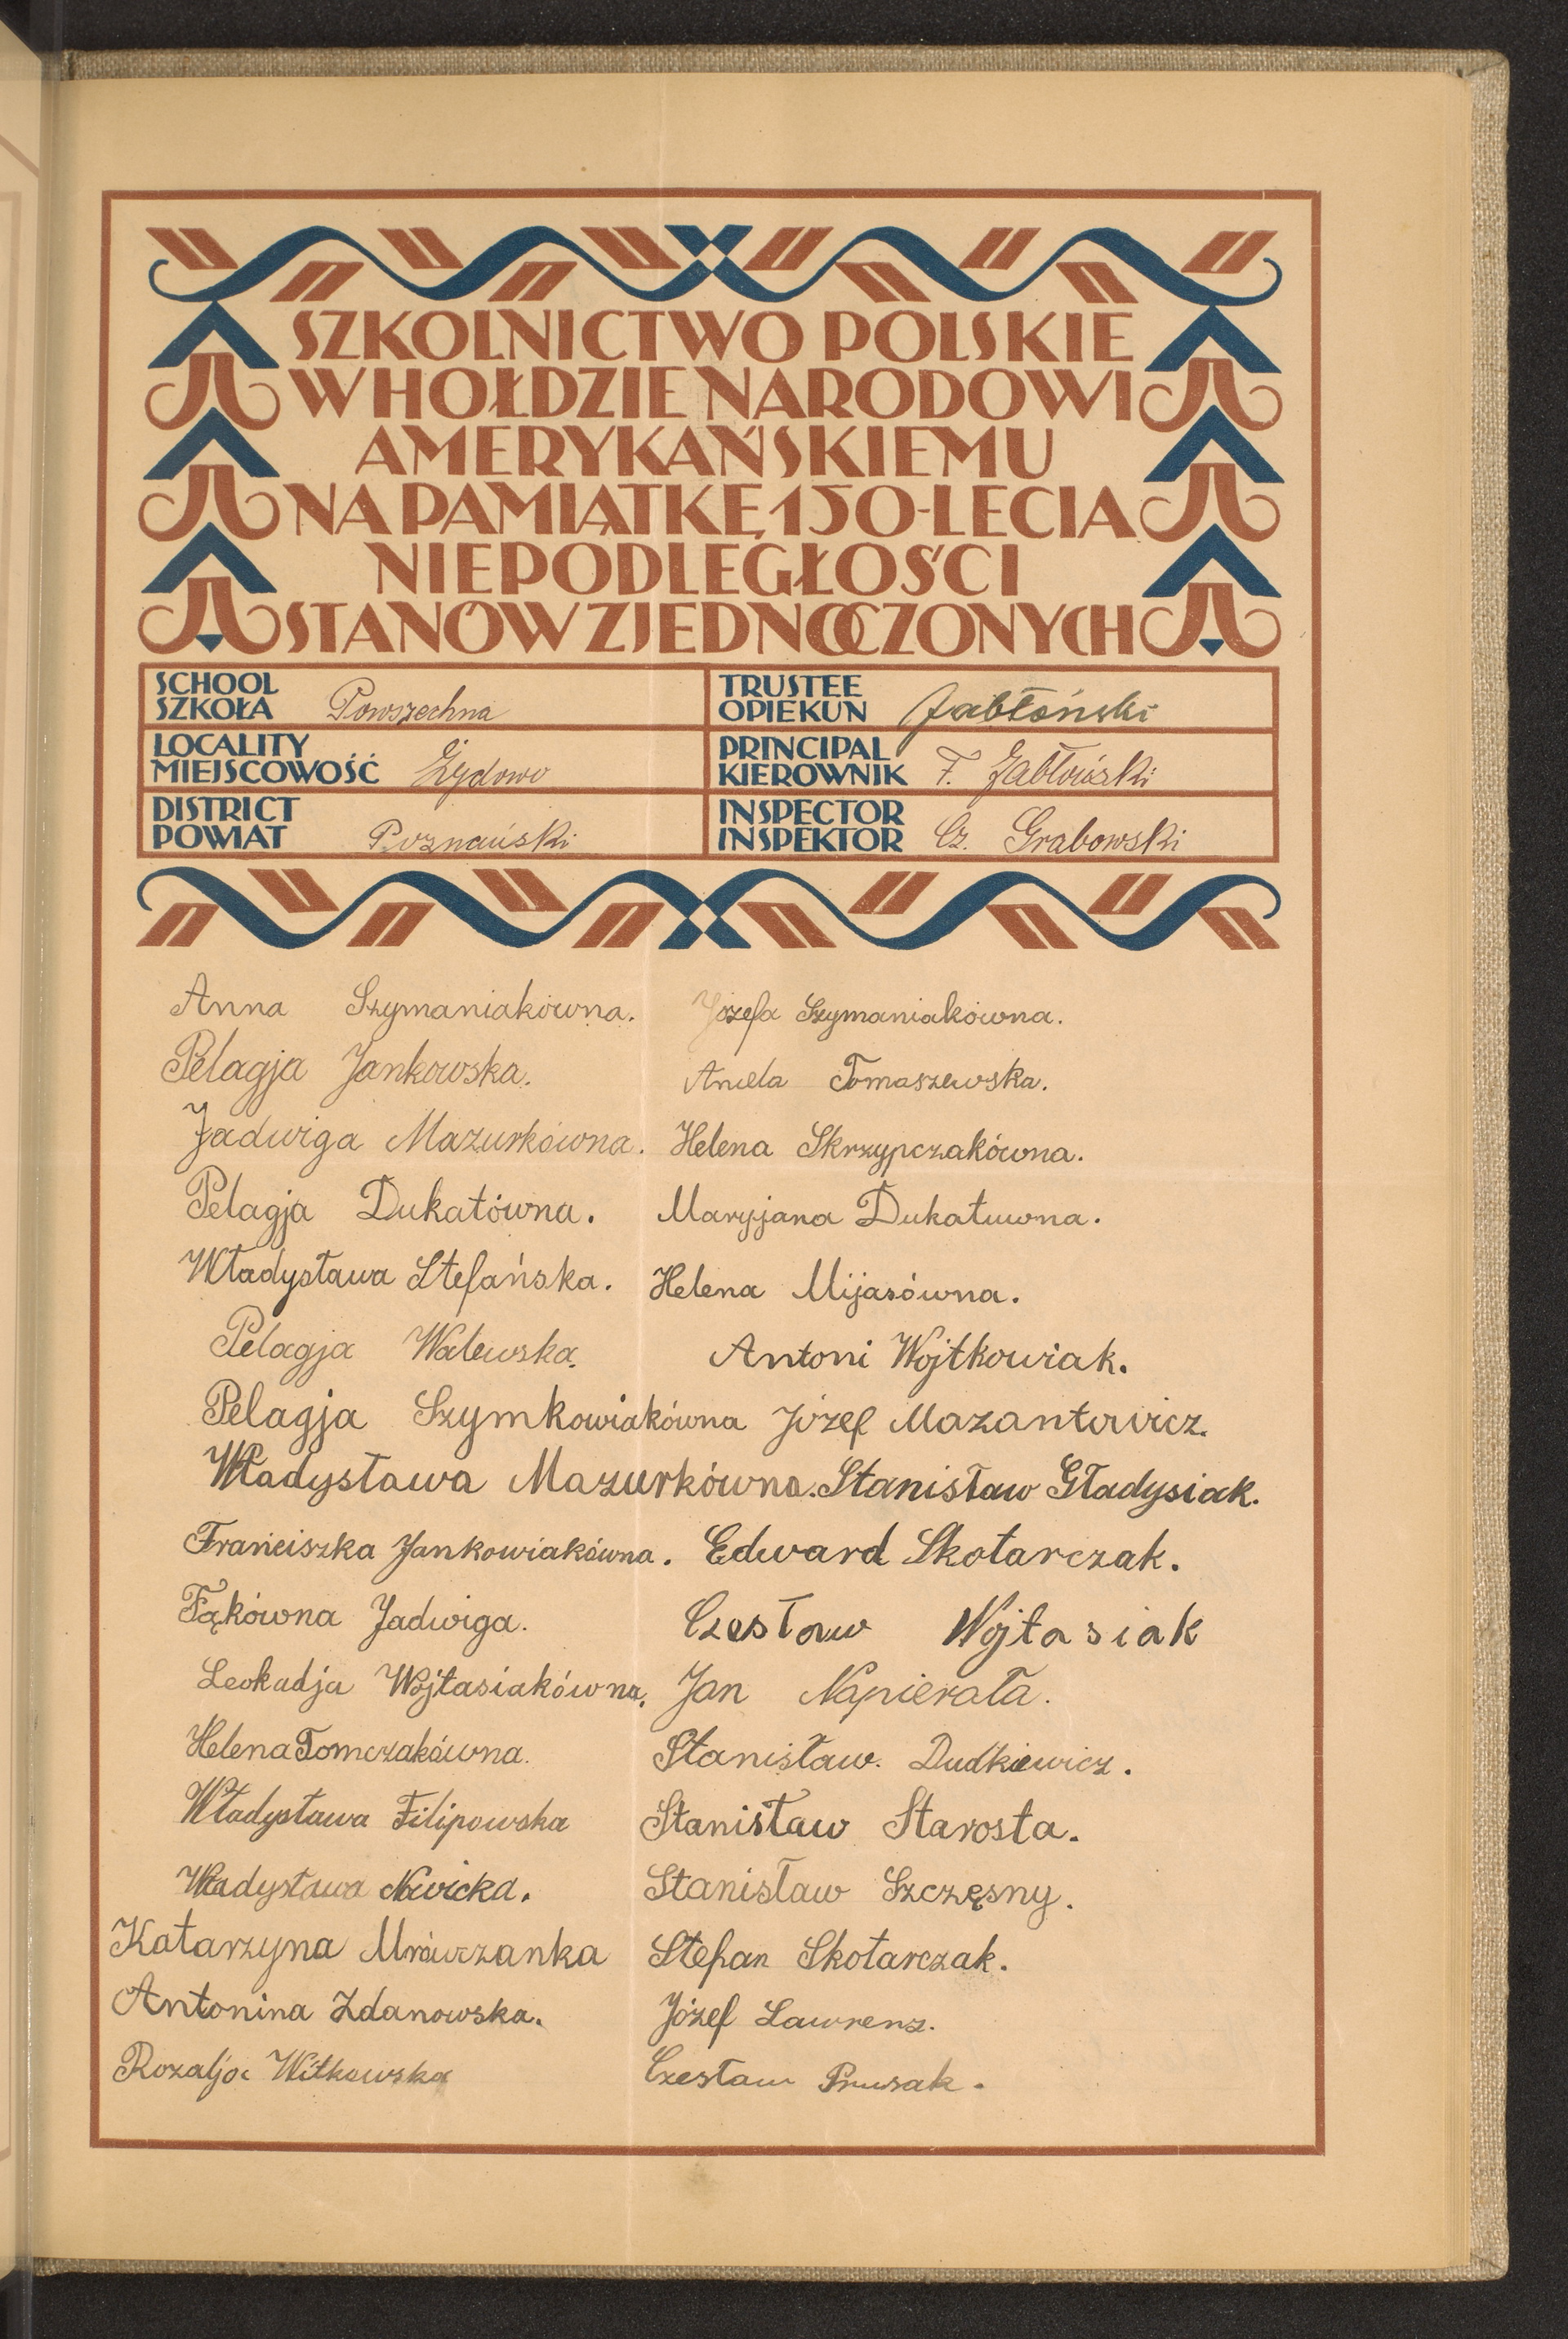 SZKOLNICTWO POLSKIE
W HOŁDZIE NARODOWI
AMERYKAŃSKIEMU
NA PAMIĄTKĘ 150-LECIA
NIEPODLEGŁOŚCI
STANÓW ZJEDNOCZONYCH
SCHOOL
SZKOŁA Powszechna
TRUSTEE
OPIEKUN Jabłoński
LOCALITY
MIEJSCOWOŚĆ Żydowo
PRINCIPAL
KIEROWNIK F. Jabłoński
DISTRICT
POWIAT Poznański
INSPECTOR
INSPEKTOR Cz. Grabowski
Anna Szymaniakówna. Józefa Szymaniakówna.
Pelagja Jankowska. Aniela Tomaszewska.
Jadwiga Mazurkówna. Helena Skrzypczakówna.
Pelagja Dukatówna. Maryjana Dukatuwna.
Władysława Stefańska. Helena Mijasówna.
Pelagja Walewska. Antoni Wojtkowiak.
Pelagja Szymkowiakówna Józef Mazantowicz.
Władysława Mazurkówna. Stanisław Gładysiak.
Franciszka Jankowiakówna. Edward Skotarczak.
Fąkówna Jadwiga. Czesław Wojtasiak
Leokadja Wojtasiakówna. Jan Napierała.
Helena Tomczakówna. Stanisław. Dudkiewicz.
Władysława Filipowska Stanisław Starosta.
Władysława Nowicka. Stanisław Szczęsny.
Katarzyna Mrówczanka Stefan Skotarczak.
Antonina Zdanowska. Józef Lawrenz.
Rozalja Witkowska Czesław Prusak.